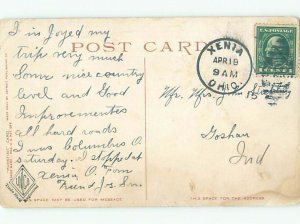 POST CARD
I is Joyed my
trip very much
Some nice country
level and Good
Improvements
all hard roads
I was Columbus O.
Saturday. I stopped at
Xenia O. Tom
Friend Jos. Sm.
THIS SPACE MAY BE USED FOR MESSAGE.
XENIA
APR 19
9 AM
OHIO.
Goshen
Ind
THIS SPACE IS FOR THE ADDRESS.